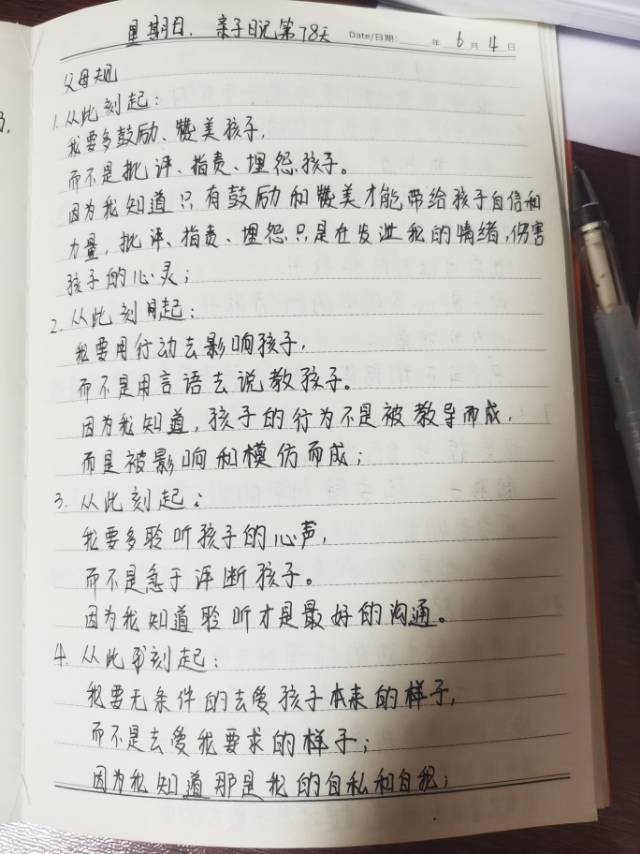 星期日. 亲子日记第78天 Date/日期: 年 6 月 4 日
父母规
1. 从此刻起:
我要多鼓励、赞美孩子,
而不是批评、指责、埋怨孩子。
因为我知道只有鼓励和赞美才能带给孩子自信和
力量, 批评、指责、埋怨只是在发泄我的情绪,伤害
孩子的心灵;
2. 从此刻起:
我要用行动去影响孩子,
而不是用言语去说教孩子。
因为我知道, 孩子的行为不是被教导而成,
而是被影响和模仿而成;
3. 从此刻起:
我要多聆听孩子的心声,
而不是急于评断孩子。
因为我知道聆听才是最好的沟通。
4. 从此刻起:
我要无条件的去爱孩子本来的样子,
而不是去爱我要求的样子;
因为我知道那是我的自私和自我;